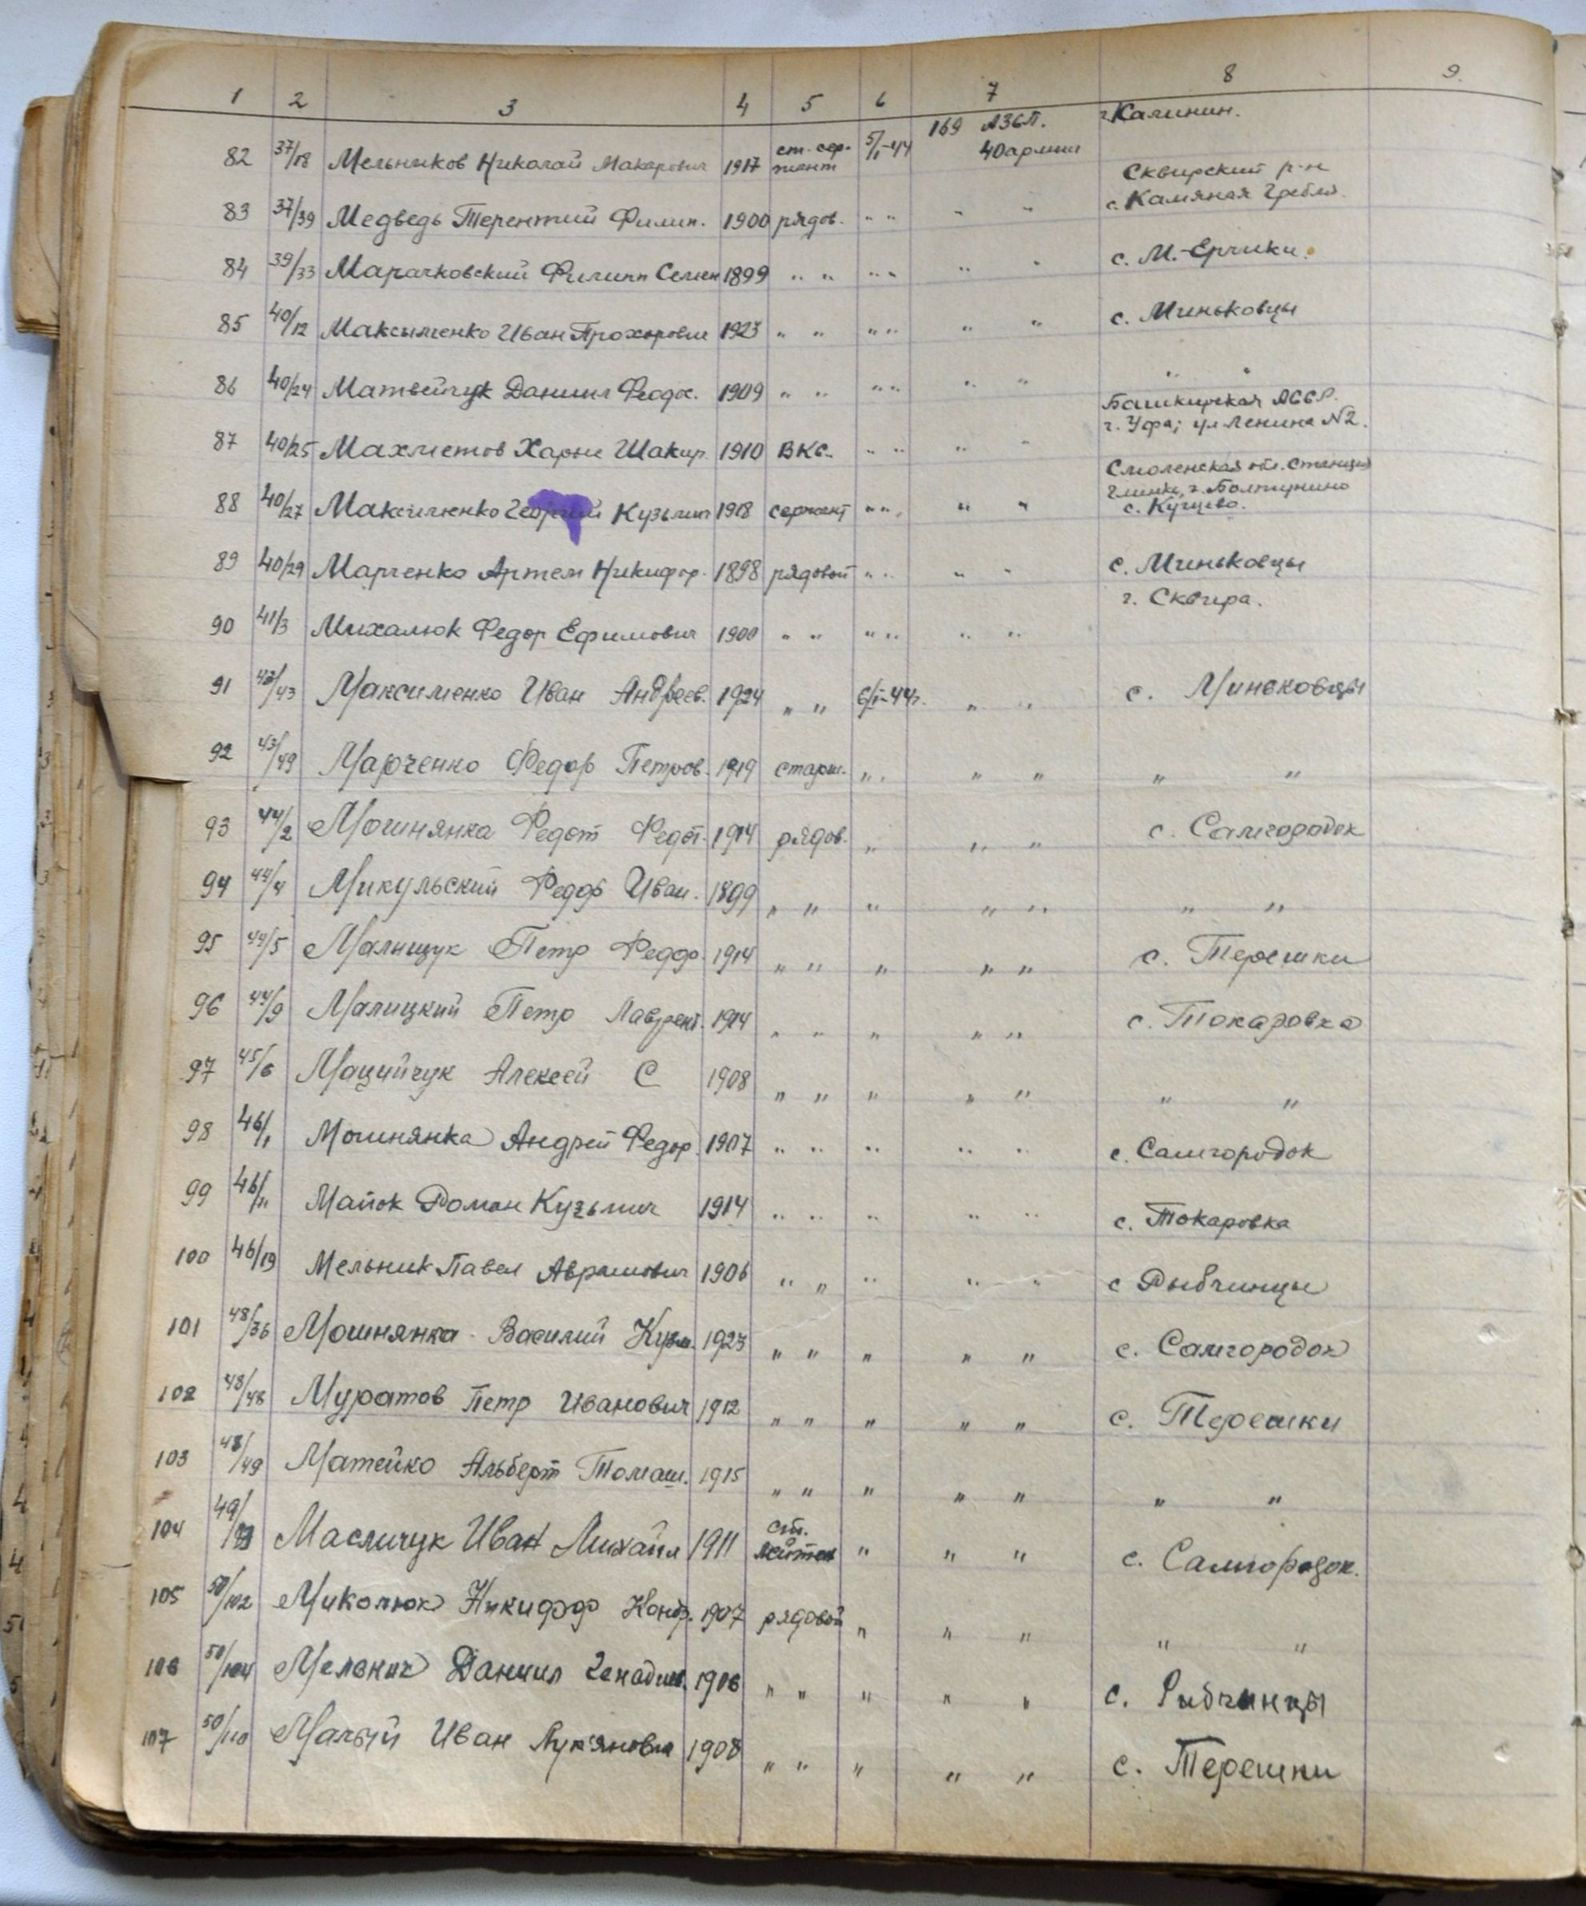 1 2 3 4 5 6 7 8 9.
82 37/18 Мельников Николай Макарович 1917 ст. сер-жант 5/I-44 169 АЗСП. 40 армии г. Калинин.
83 37/39 Медведь Терентий Филип. 1900 рядов. " " " " Сквирский р-н с. Камяная Гребля.
84 39/33 Марачковский Филипп Семен 1899 " " " " " " с. М.-Ерчики.
85 40/12 Максименко Иван Прохорович 1923 " " " " " " с. Миньковцы
86 40/24 Матвейчук Даниил Феодос. 1909 " " " " " " " "
87 40/25 Махметов Харис Шакир. 1910 ВКС. " " " " Башкирская АССР. г. Уфа; ул Ленина №2.
88 40/27 Максименко Георгий Кузьмич 1918 сержант " " " " Смоленская обл. Станция Глинка, г. Болтунино с.
89 40/29 Марченко Артем Никифор. 1898 рядовой " " " " с. Миньковцы
90 41/3 Михалюк Федор Ефимович 1900 " " " " " " г. Сквира.
91 43/43 Максименко Иван Андреев. 1924 " " 6/I-44г. " " с. Миньковцы
92 43/49 Марченко Федор Петров. 1919 старш. " " " " " "
93 44/2 Мошнянка Федот Федот. 1914 рядов. " " " с. Самгородок
94 44/4 Микульский Федор Иван. 1899 " " " " " " "
95 44/5 Малищук Петр Федор. 1914 " " " " " с. Терешки
96 44/9 Малицкий Петр Лаврент. 1914 " " " " " с. Токаровка
97 45/6 Мацийчук Алексей С 1908 " " " " " " "
98 46/1 Мошнянка Андрей Федор. 1907 " " " " " с. Самгородок
99 46/11 Майок Роман Кузьмич 1914 " " " " " с. Токаровка
100 46/19 Мельник Павел Аврамович 1906 " " " " " с Рыбчинцы
101 48/36 Мошнянка Василий Кузм. 1923 " " " " " с. Самгородок
102 48/48 Муратов Петр Иванович 1912 " " " " " с. Терешки
103 48/49 Матейко Альберт Томаш. 1915 " " " " " " "
104 49/ Масличук Иван Михайл 1911 ст. лейтен " " " с. Самгородок.
105 50/102 Миколюк Никифор Конд. 1907 рядовой " " " " "
106 50/104 Мельнич Даниил Генадиев. 1906 " " " " " с. Рибчинцы
107 50/110 Малый Иван Лукянович 1908 " " " " " с. Терешки